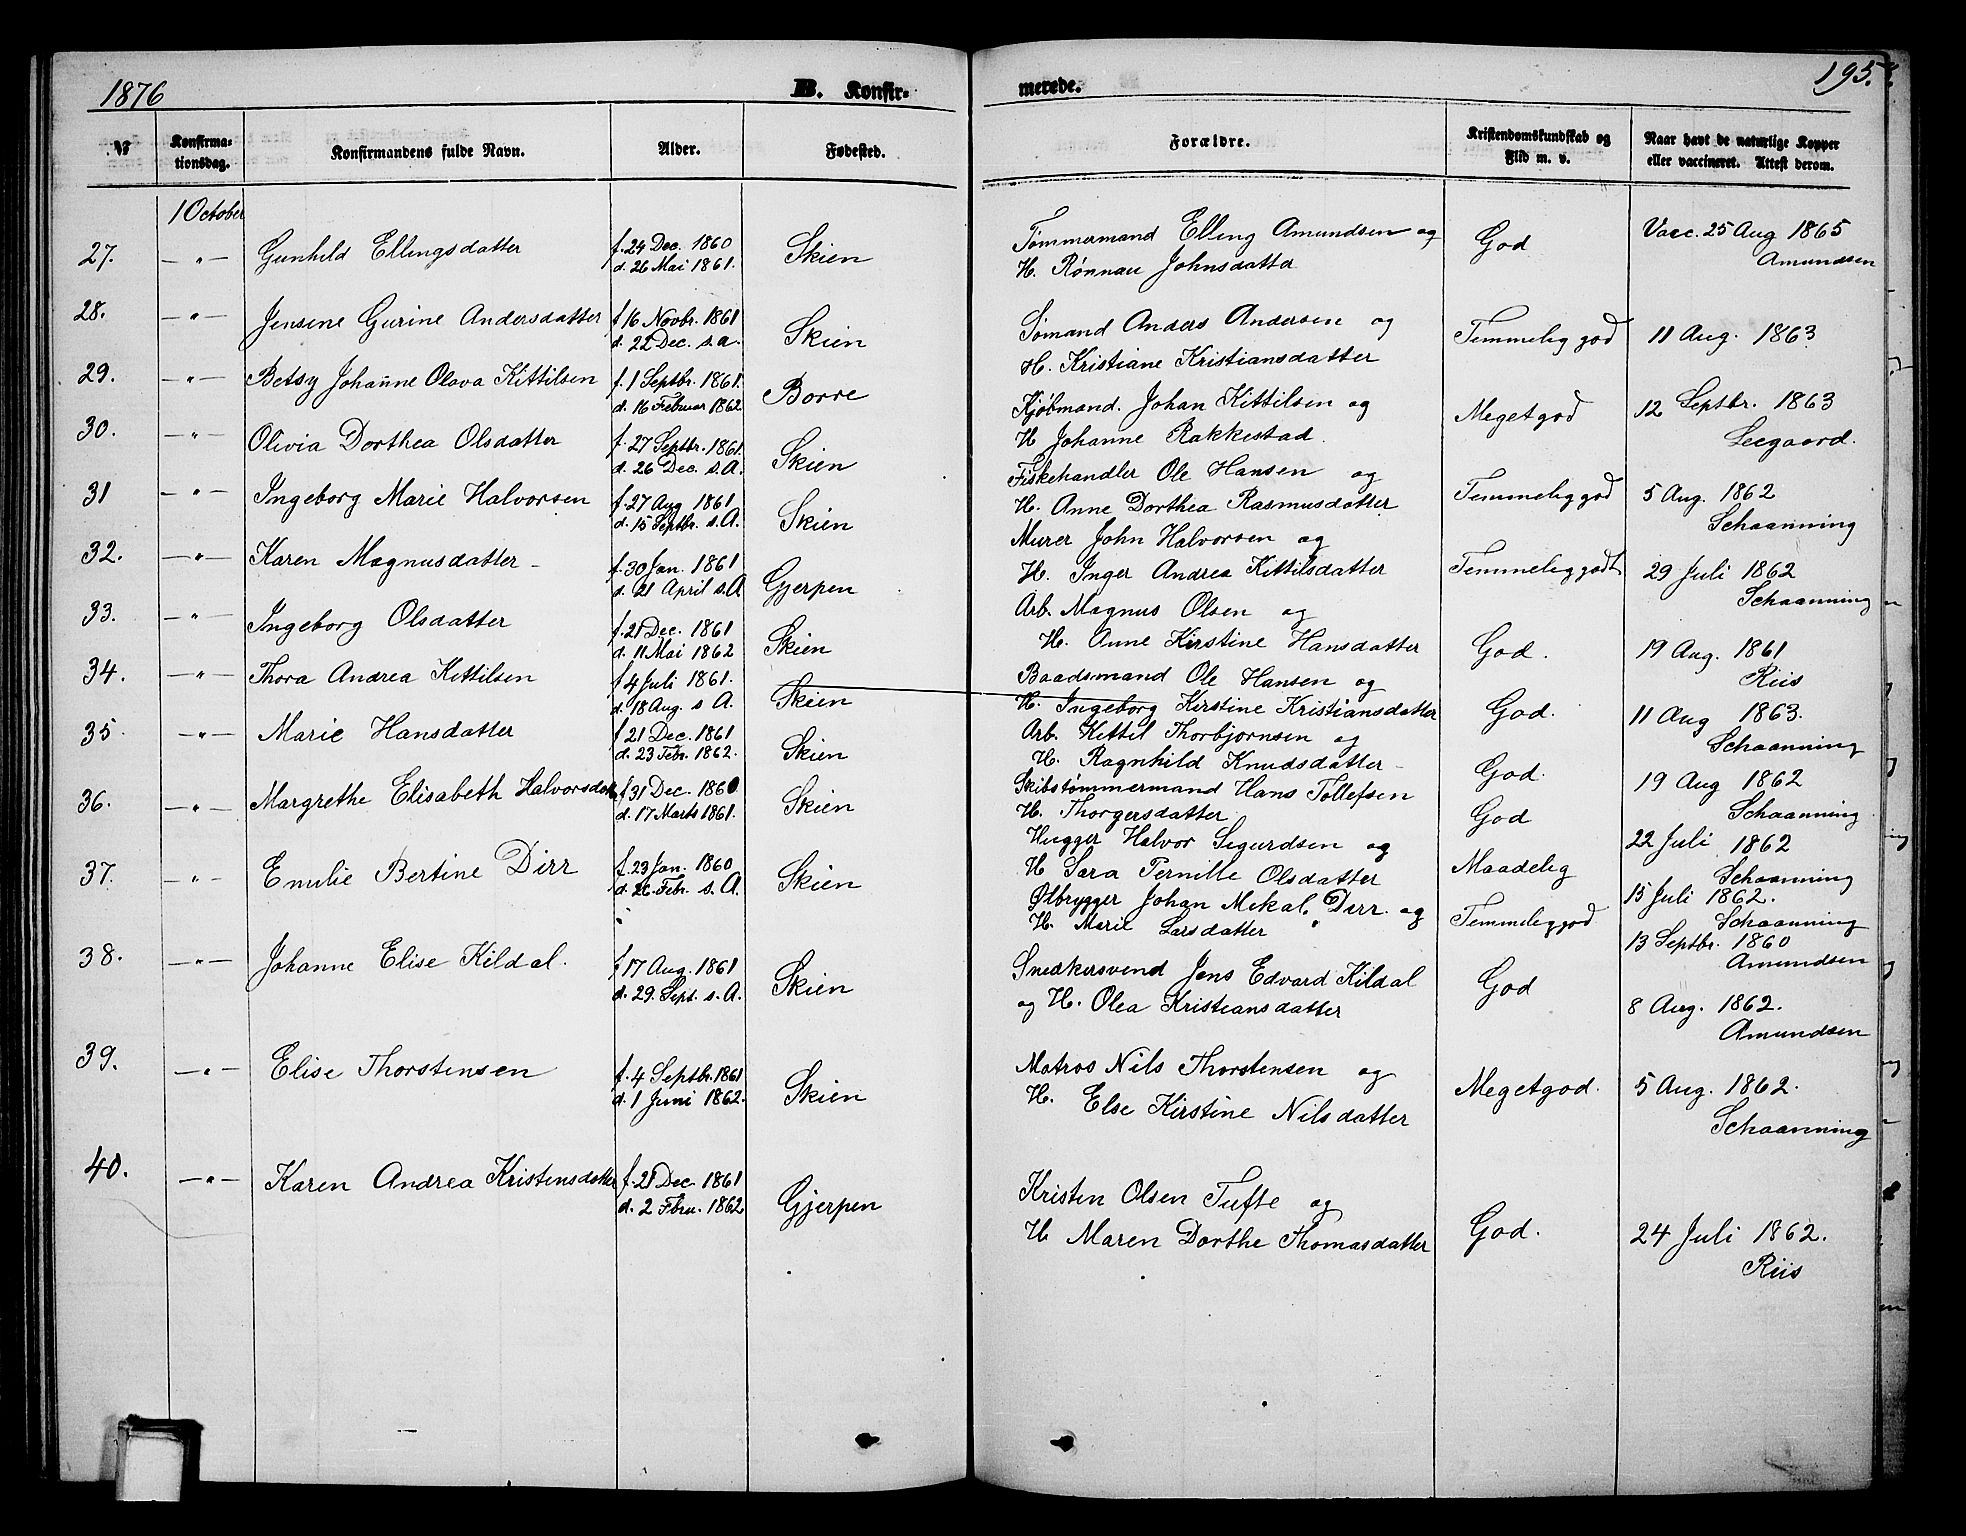 1876
B. Konfir-
merede.
195.
№
Konfirma-
tionsdag.
Konfirmandens fulde Navn.
Alder.
Fødested.
Forældre.
Kristendomskundskab og
Flid m. v.
Naar havt de naturlige Kopper
eller vaccineret. Attest derom.
1 October
27. —"— Gunhild Ellingsdatter f. 24 Dec. 1860
d. 26 Mai 1861. Skien
28. —"— Jensine Gurine Andersdatter f 16 Novbr. 1861
d. 22 Dec. s. a. Skien
29. —"— Betsy Johanne Olava Kittilsen f. 1 Septbr. 1861.
d. 16 Februar 1862. Borre
30. —"— Olivia Dorthea Olsdatter f. 27 Septbr. 1861.
d. 26 Dec. s. A. Skien
31 —"— Ingeborg Marie Halvorsen f. 27 Aug 1861
d. 15 Septbr. s. A. Skien
32. —"— Karen Magnusdatter f. 30 Jan. 1861
d. 21 April s. A Gjerpen
33. —"— Ingeborg Olsdatter f. 21 Dec. 1861
d. 11 Mai 1862 Skien
34. —"— Thora Andrea Kittilsen f 4 Juli 1861.
d. 18 Aug. s A. Skien
35 —"— Marie Hansdatter f 21 Dec. 1861
d. 23 Febr. 1862. Skien
36. —"— Margrethe Elisabeth Halvorsdat f 31 Dec. 1860
d. 17 Marts 1861. Skien
37. —"— Emilie Bertine Dirr f. 23 Jan. 1860
d. 26 Febr. s. A. Skien
38. —"— Johanne Elise Kildal. f 17 Aug. 1861
d. 29. Sept. s. A. Skien
39. —"— Elise Thorstensen f. 4 Septbr. 1861
d. 1 Juni 1862. Skien
40. —"— Karen Andrea Kristensdatter f. 21 Dec. 1861
d. 2 Febru. 1862 Gjerpen
Tømmermand Elling Amundsen og
H. Rønnau Johnsdatter
God
Vacc. 25 Aug 1865
Amundsen
Sømand Anders Andersen og
H. Kristiane Kristiansdatter
Temmelig god
11 Aug. 1863
Kjøbmand. Johan Kittilsen og
H Johanne Rakkestad.
Megetgod
12 Septbr. 1863
Seegaard.
Fiskehandler Ole Hansen og
H. Anne Dorthea Rasmusdatter
Temmeliggod
5 Aug. 1862
Schaanning
Murer John Halvorsen og
H. Inger Andrea Kittilsdatter
Temmeliggodt
29 Juli 1862
Schaanning
Arb. Magnus Olsen og
H. Anne Kirstine Hansdatter
God.
19 Aug. 1861
Riis
Baadsmand Ole Hansen og
H. Ingeborg Kirstine Kristiansdatter
God.
11 Aug 1863.
Schaanning
Arb. Kittil Thorbjørnsen og
H. Ragnhild Knudsdatter
God.
19 Aug 1862
Schaanning
Skibstømmermand Hans Tollefsen
H. Thorgersdatter
God
22 Juli 1862
Schaanning
Hugger Halvor Sigurdsen og
H Sara Pernille Olsdatter
Maadelig
15 Juli 1862.
Schaanning
Ølbrygger Johan Mekal. Dirr. og
H. Marie Larsdatter
Temmeliggod
13 Septbr. 1860
Amundsen
Snedkersvend Jens Edvard Kildal
og H. Olea Kristiansdatter
God
8 Aug. 1862.
Amundsen
Matros Nils Thorstensen og
H. Else Kirstine Nilsdatter
Megetgod.
5 Aug. 1862.
Schaanning
Kristen Olsen Tufte og
H Maren Dorthe Thomasdatter
God.
24 Juli 1862.
Riis